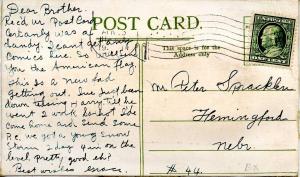 Dear Brother
Rec'd ur Post Card
Certainly was a
dandy. I cant get any
comics here. So will send
you the American flag.
This is a new fad
getting out. Ive just been
down till he
went to work he told me
come home and send some
P.C. we got a young snow
storm 2 day 4 in on the
level pretty good eh?
Best wishes
POST CARD.
This space is for the
Address only
Mr Peter Spracklen
Hemingford
Nebr.
# 44.